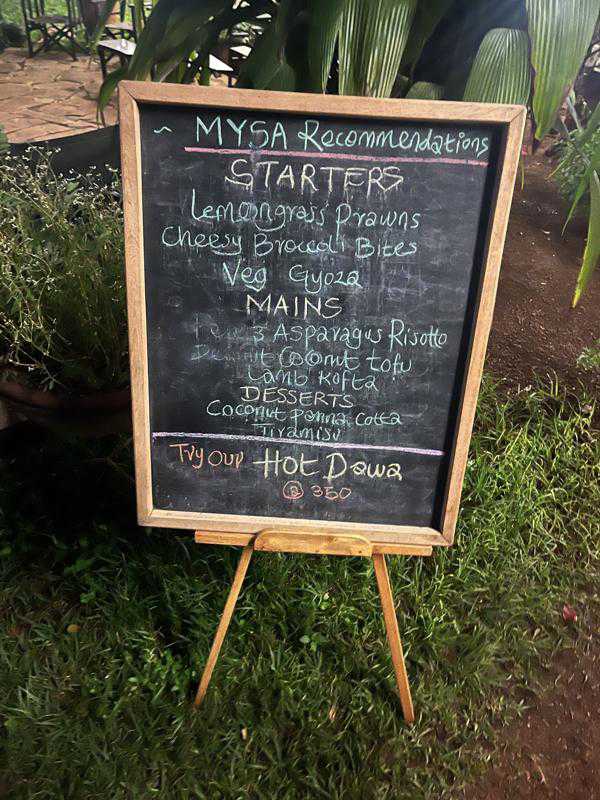 ~ MYSA Recommendations
STARTERS
Lemongrass Prawns
Cheesy Broccoli Bites
Veg Gyoza
MAINS
Asparagus Risotto
Coconut tofu
Lamb Kofta
DESSERTS
Coconut Panna Cotta
Tiramisu
Try our Hot Dawa
@ 350